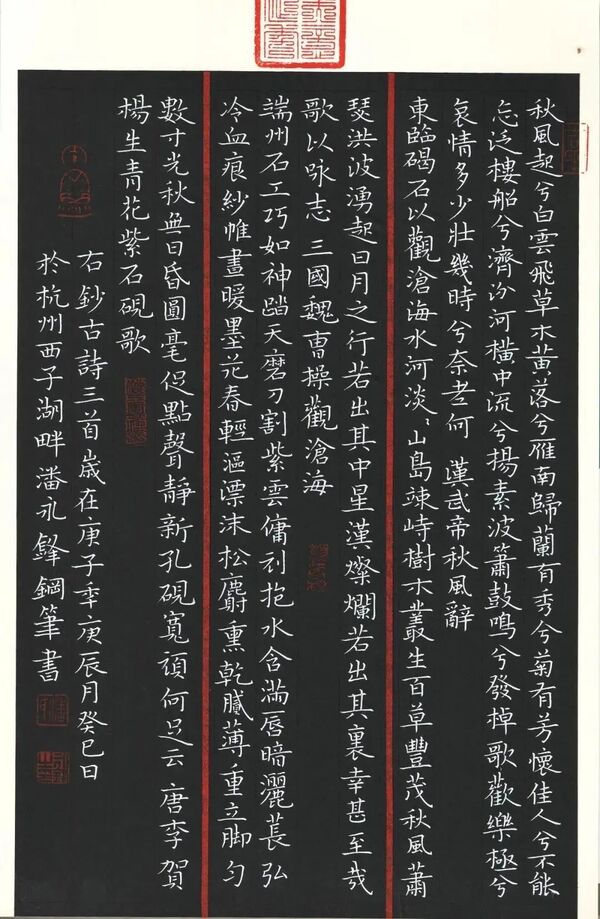 秋風起兮白雲飛草木黃落兮雁南歸蘭有秀兮菊有芳懷佳人兮不能
忘泛樓船兮濟汾河橫中流兮揚素波簫鼓鳴兮發棹歌歡樂極兮
哀情多少壯幾時兮奈老何 漢武帝秋風辭
東臨碣石以觀滄海水河淡〻山島竦峙樹木叢生百草豐茂秋風蕭
瑟洪波湧起日月之行若出其中星漢燦爛若出其裏幸甚至哉
歌以詠志 三國魏曹操觀滄海
端州石工巧如神踏天磨刀割紫雲傭刓抱水含滿唇暗灑萇弘
冷血痕紗帷晝暖墨花春輕漚漂沫松麝熏乾膩薄重立脚勻
數寸光秋無日昏圓毫促點聲靜新孔硯寬頑何足云 唐李賀
楊生青花紫石硯歌
右鈔古詩三首歲在庚子年庚辰月癸巳日
於杭州西子湖畔潘永鋒鋼筆書